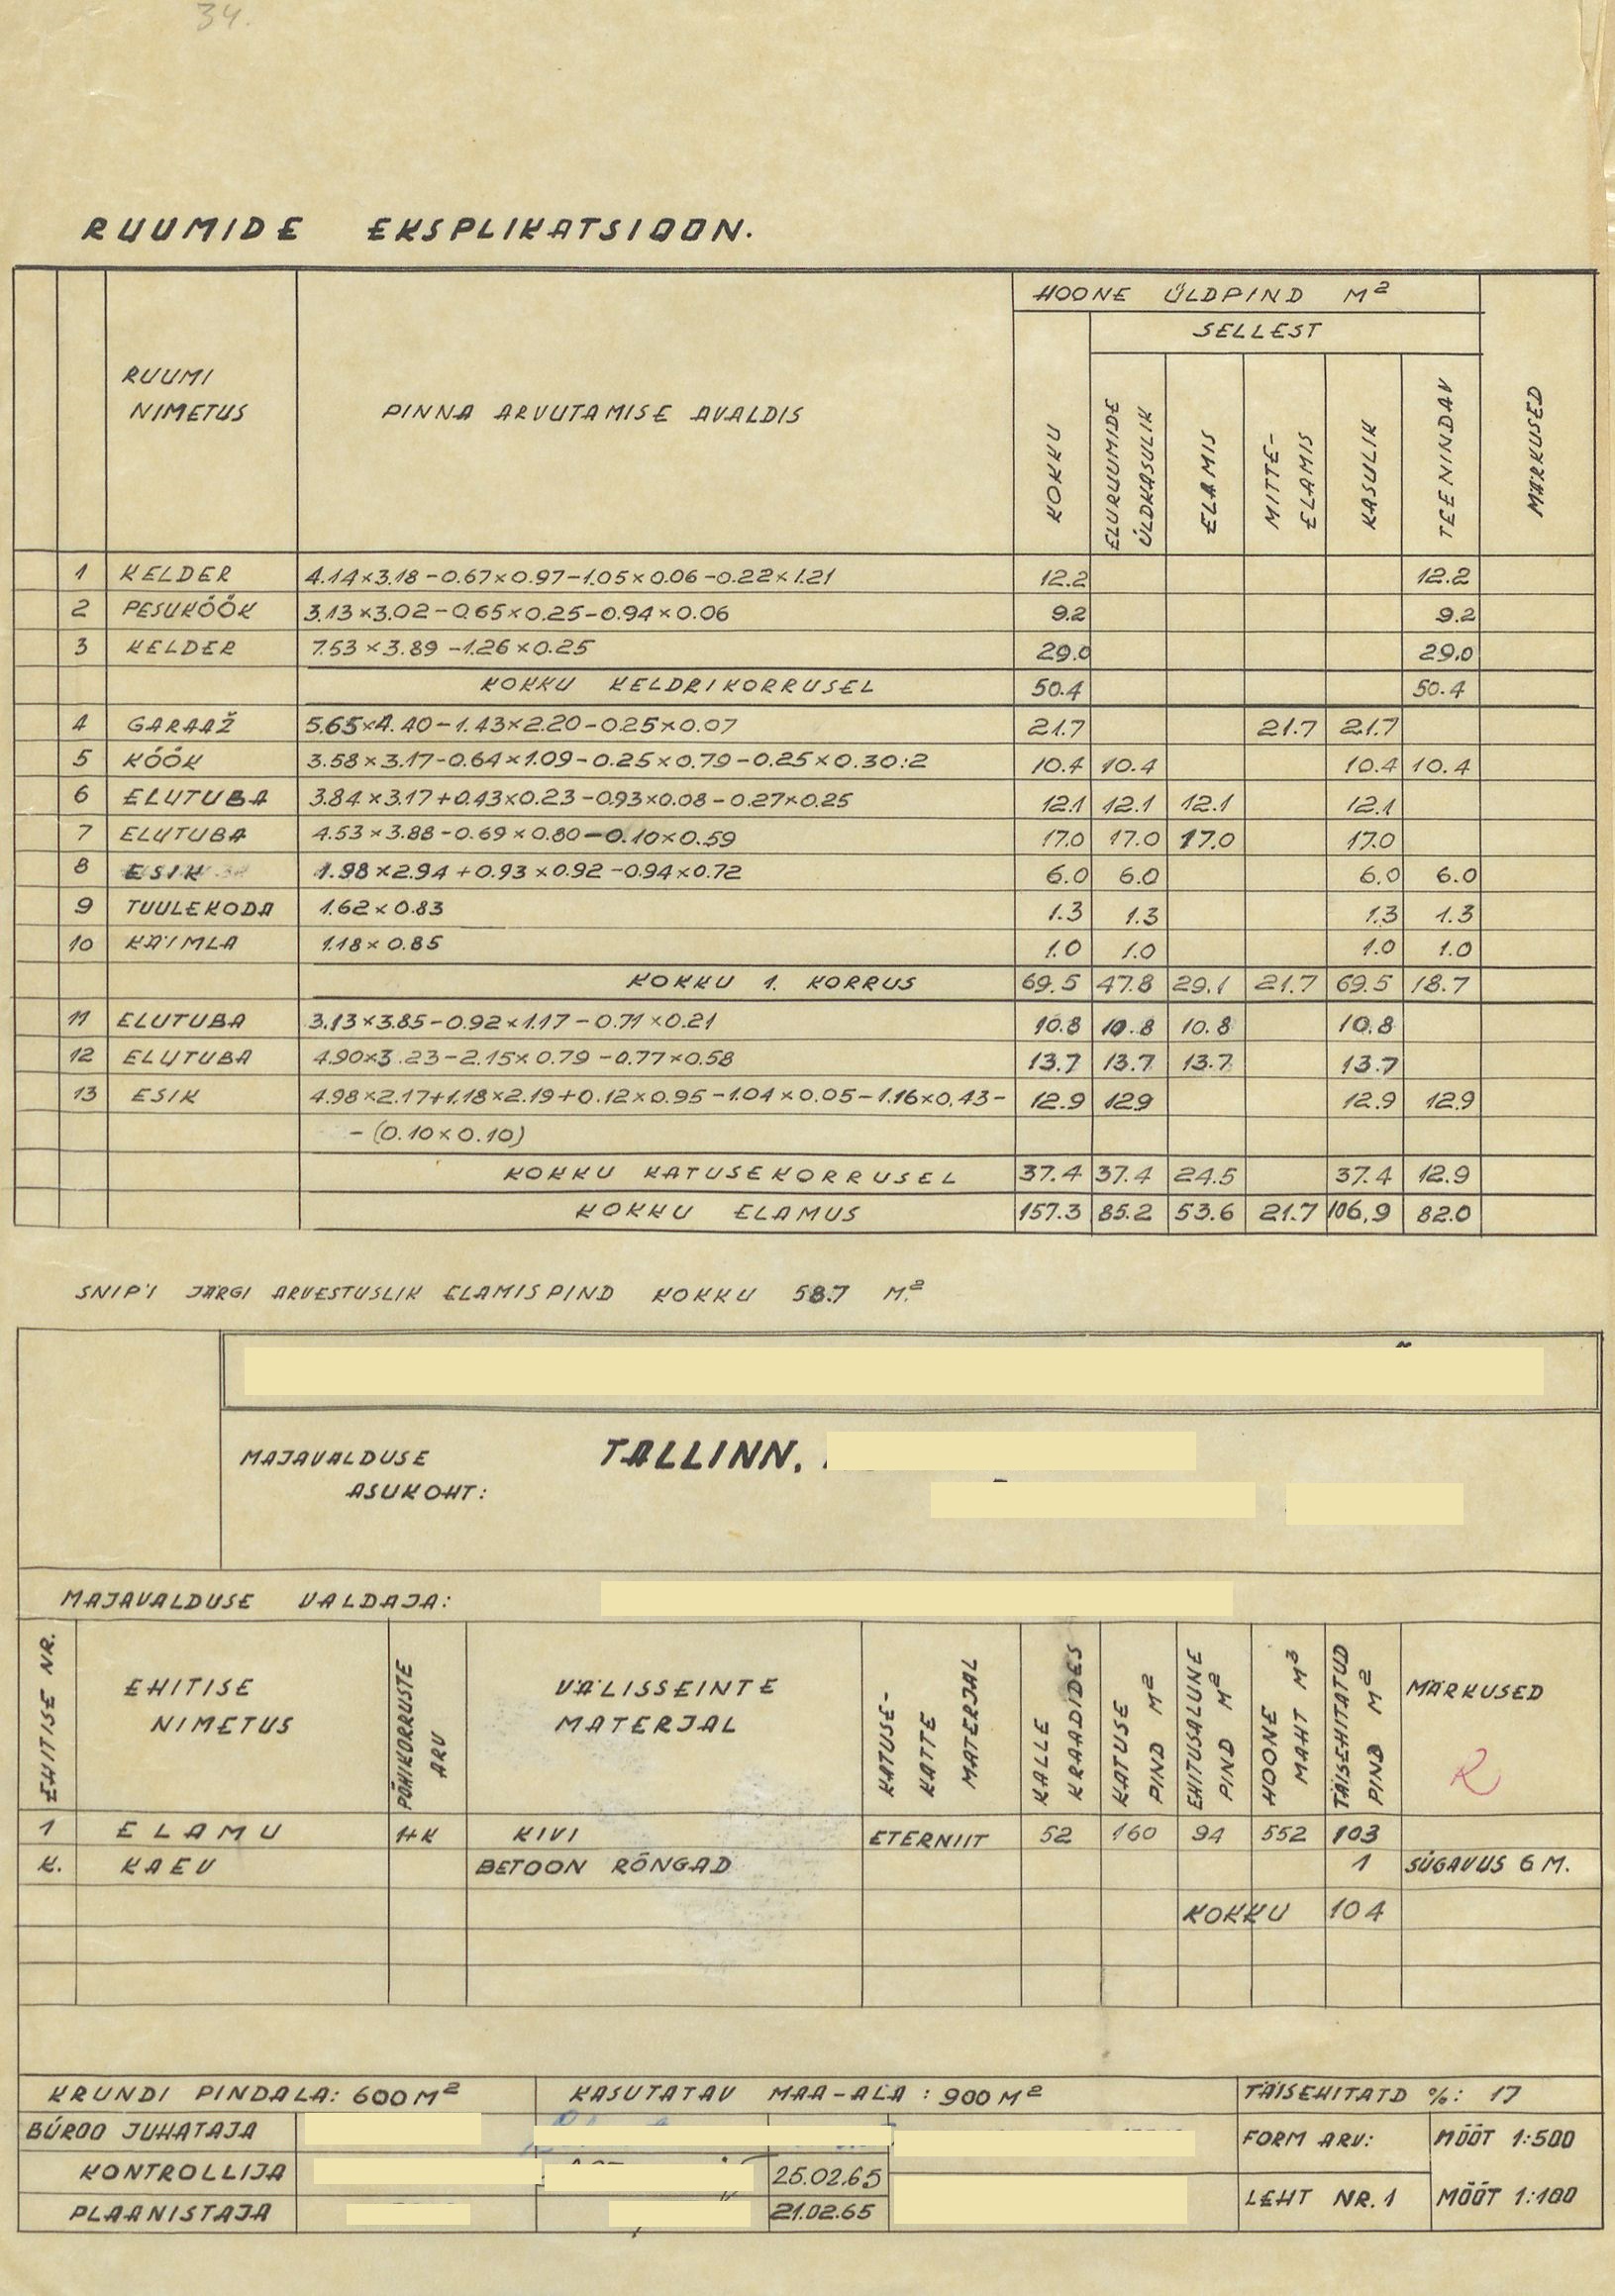 34.
RUUMIDE EKSPLIKATSIOON.
RUUMI NIMETUS PINNA ARVUTAMISE AVALDIS HOONE ÜLDPIND M²
SELLEST
KOKKU ELURUUMIDE ÜLDKASULIK ELAMIS MITTE-ELAMIS KASULIK TEENINDAV MÄRKUSED
1 KELDER 4.14×3.18-0.67×0.97-1.05×0.06-0.22×1.21 12.2 12.2
2 PESUKÖÖK 3.13×3.02-0.65×0.25-0.94×0.06 9.2 9.2
3 KELDER 7.53×3.89-1.26×0.25 29.0 29.0
KOKKU KELDRIKORRUSEL 50.4 50.4
4 GARAAŽ 5.65×4.40-1.43×2.20-0.25×0.07 21.7 21.7 21.7
5 KÖÖK 3.58×3.17-0.64×1.09-0.25×0.79-0.25×0.30:2 10.4 10.4 10.4 10.4
6 ELUTUBA 3.84×3.17+0.43×0.23-0.93×0.08-0.27×0.25 12.1 12.1 12.1 12.1
7 ELUTUBA 4.53×3.88-0.69×0.80-0.10×0.59 17.0 17.0 17.0 17.0
8 ESIK 1.98×2.94+0.93×0.92-0.94×0.72 6.0 6.0 6.0 6.0
9 TUULEKODA 1.62×0.83 1.3 1.3 1.3 1.3
10 KÄIMLA 1.18×0.85 1.0 1.0 1.0 1.0
KOKKU 1. KORRUS 69.5 47.8 29.1 21.7 69.5 18.7
11 ELUTUBA 3.13×3.85-0.92×1.17-0.71×0.21 10.8 10.8 10.8 10.8
12 ELUTUBA 4.90×3.23-2.15×0.79-0.77×0.58 13.7 13.7 13.7 13.7
13 ESIK 4.98×2.17+1.18×2.19+0.12×0.95-1.04×0.05-1.16×0.43- 12.9 12.9 12.9 12.9
-(0.10×0.10)
KOKKU KATUSEKORRUSEL 37.4 37.4 24.5 37.4 12.9
KOKKU ELAMUS 157.3 85.2 53.6 21.7 106.9 82.0
SNIP'I JÄRGI ARVESTUSLIK ELAMISPIND KOKKU 58.7 M.²
MAJAVALDUSE TALLINN,
ASUKOHT:
MAJAVALDUSE VALDAJA:
EHITISE NR. EHITISE NIMETUS PÕHIKORRUSTE ARV VÄLISSEINTE MATERJAL KATUSE-KATTE MATERJAL KALLE KRAADIDES KATUSE PIND M² EHITUSALUNE PIND M² HOONE MAHT M³ TÄISEHITATUD PIND M² MÄRKUSED
R
1 ELAMU 1+K KIVI ETERNIIT 52 160 94 552 103
K. KAEV BETOON RÕNGAD 1 SÜGAVUS 6 M.
KOKKU 104
KRUNDI PINDALA: 600 M² KASUTATAV MAA-ALA: 900 M² TÄISEHITATD %: 17
BÜROO JUHATAJA FORM ARV: MÕÕT 1:500
KONTROLLIJA 25.02.65
PLAANISTAJA 21.02.65 LEHT NR. 1 MÕÕT 1:100